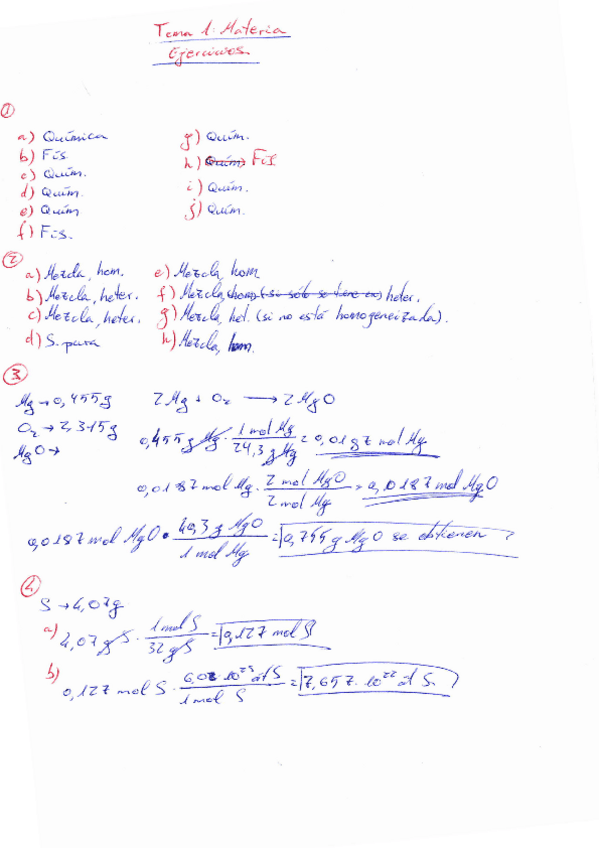 Tema 1: Materia
Ejercicios
①
a) Química
b) Fís.
c) Quím.
d) Quím.
e) Quím
f) Fís.
g) Quím.
h) Quím Fís
i) Quím.
j) Quím.
②
a) Mezcla, hom.
b) Mezcla, heter.
c) Mezcla, heter.
d) S. pura
e) Mezcla, hom
f) Mezcla, hom (si sólo se tiene en) heter.
g) Mezcla, het. (si no está homogeneizada).
h) Mezcla, hom.
③
Mg → 0,455g 2Mg + O₂ → 2MgO
O₂ → 2,315g
MgO →
0,455 g Mg · 1 mol Mg / 24,3 g Mg = 0,0187 mol Mg
0,0187 mol Mg · 2 mol MgO / 2 mol Mg = 0,0187 mol MgO
0,0187 mol MgO · 40,3 g MgO / 1 mol Mg = 0,755 g MgO se obtienen
④
S → 4,07g
a) 4,07 g S · 1 mol S / 32 g S = 0,127 mol S
b) 0,127 mol S · 6,02 · 10²³ át S / 1 mol S = 7,657 · 10²² át S